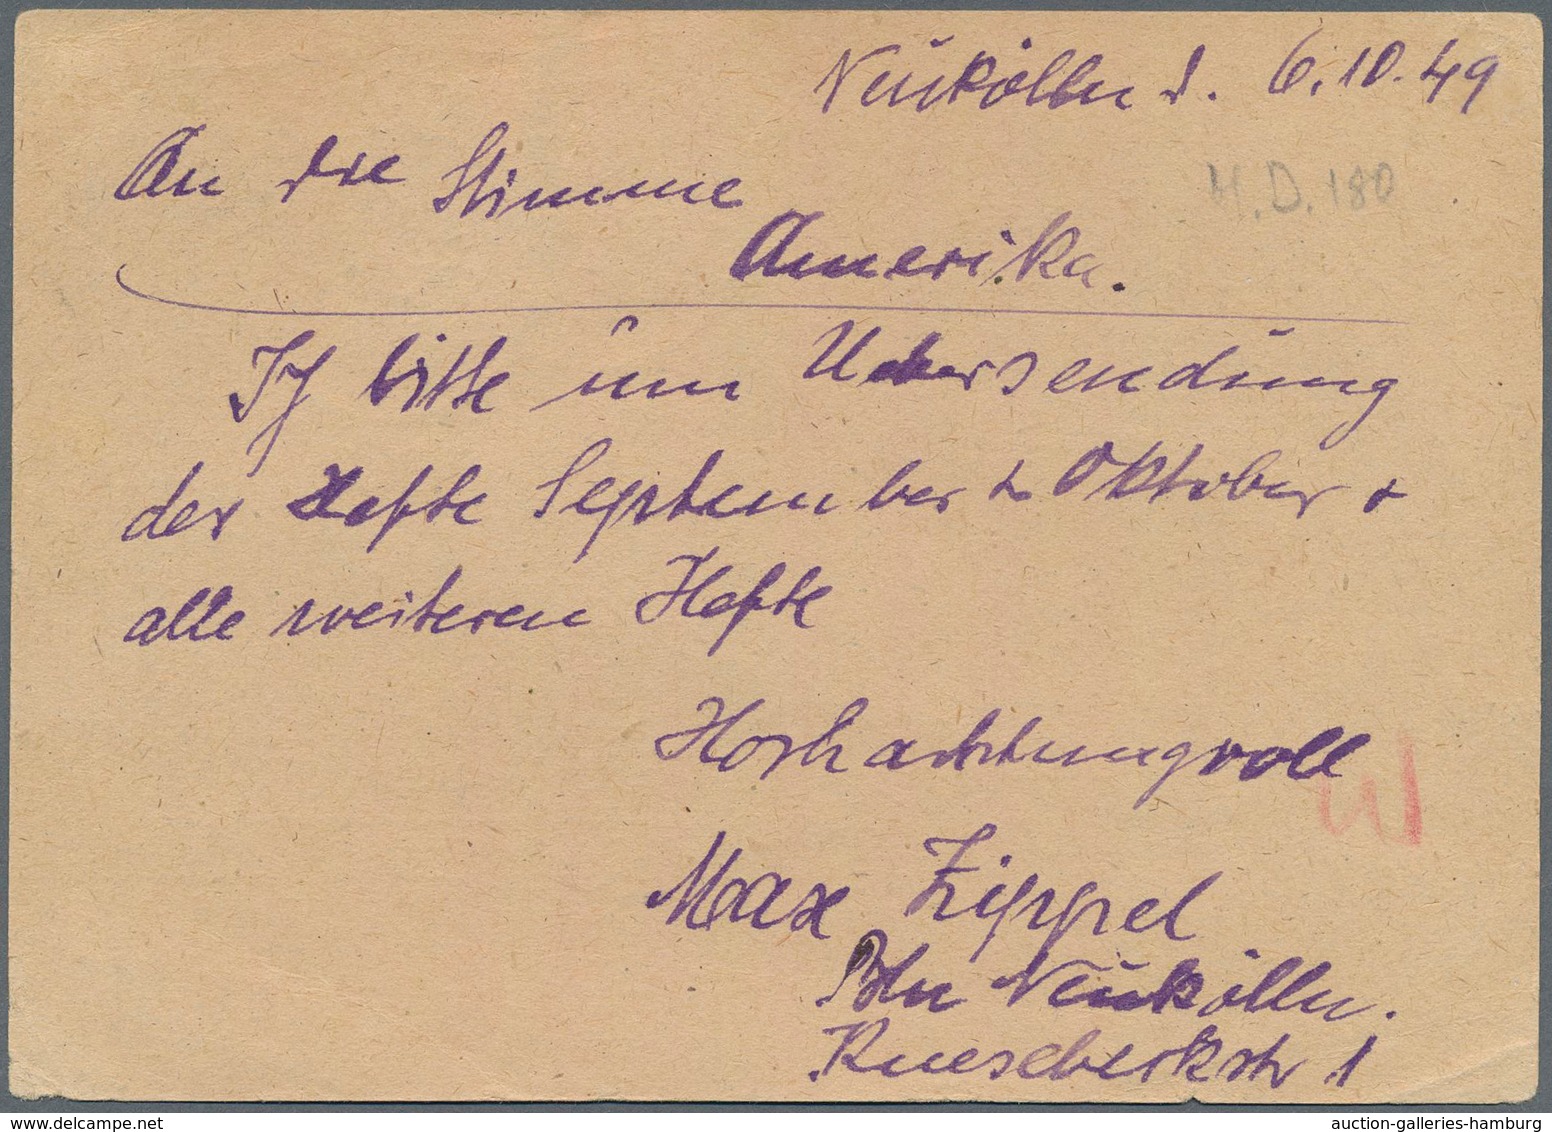 Neukölln d. 6.10.49
H.D.180
An die Stimme
Amerika.
Ich bitte um Uebersendung
der Hefte September u Oktober +
alle weiteren Hefte
Hochachtungvoll
Max Zippel
Bln Neukölln.
1
auction-galleries-hamburg